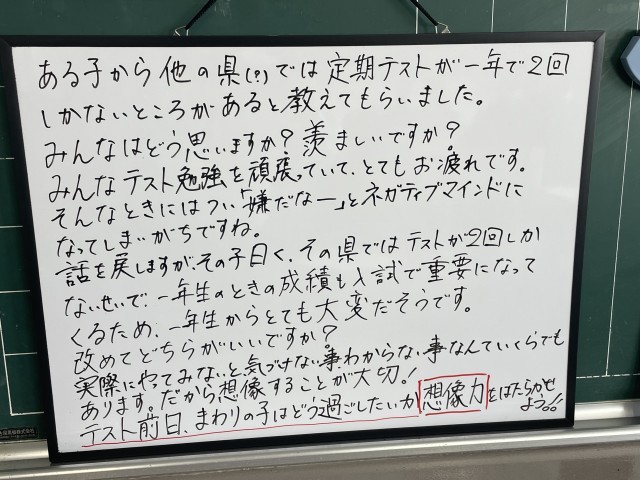 ある子から他の県(?)では定期テストが一年で2回
しかないところがあると教えてもらいました。
みんなはどう思いますか?羨ましいですか?
みんなテスト勉強を頑張っていて、とてもお疲れです。
そんなときにはつい「嫌だなー」とネガティブマインドに
なってしまいがちですね。
話を戻しますが、その子曰く、その県ではテストが2回しか
ないせいで、一年生のときの成績も入試で重要になって
くるため、一年生からとても大変だそうです。
改めてどちらがいいですか?
実際にやってみないと気づけない事、わからない事なんていくらでも
あります。だから想像することが大切!
テスト前日、まわりの子はどう過ごしたいか想像力をはたらかせ
よう!!